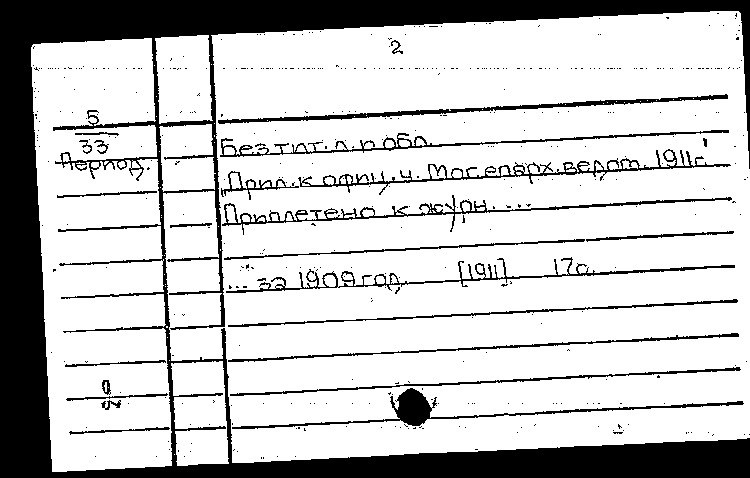 2
5
33
Период.
Без тит. л. и обл.
"Прил. к офиц. ч. Моск. епарх. ведом. 1911г."
Приплетено к журн. ...
... за 1909 год. [1911]. 17с.